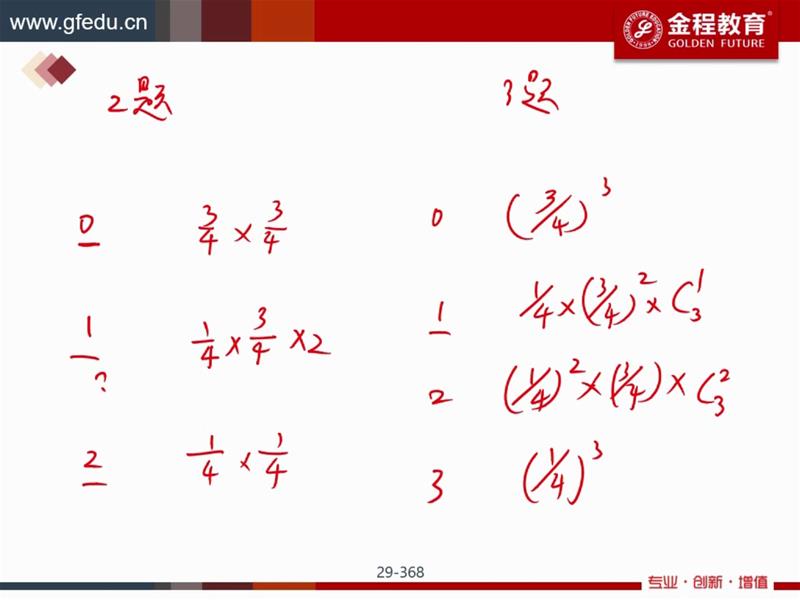 www.gfedu.cn
金程教育®
GOLDEN FUTURE
2题
3题
0 3/4 × 3/4
0 (3/4)³
1 1/4 × 3/4 × 2
?
1 1/4 × (3/4)² × C₃¹
2 (1/4)² × (3/4) × C₃²
2 1/4 × 1/4
3 (1/4)³
29-368
专业·创新·增值